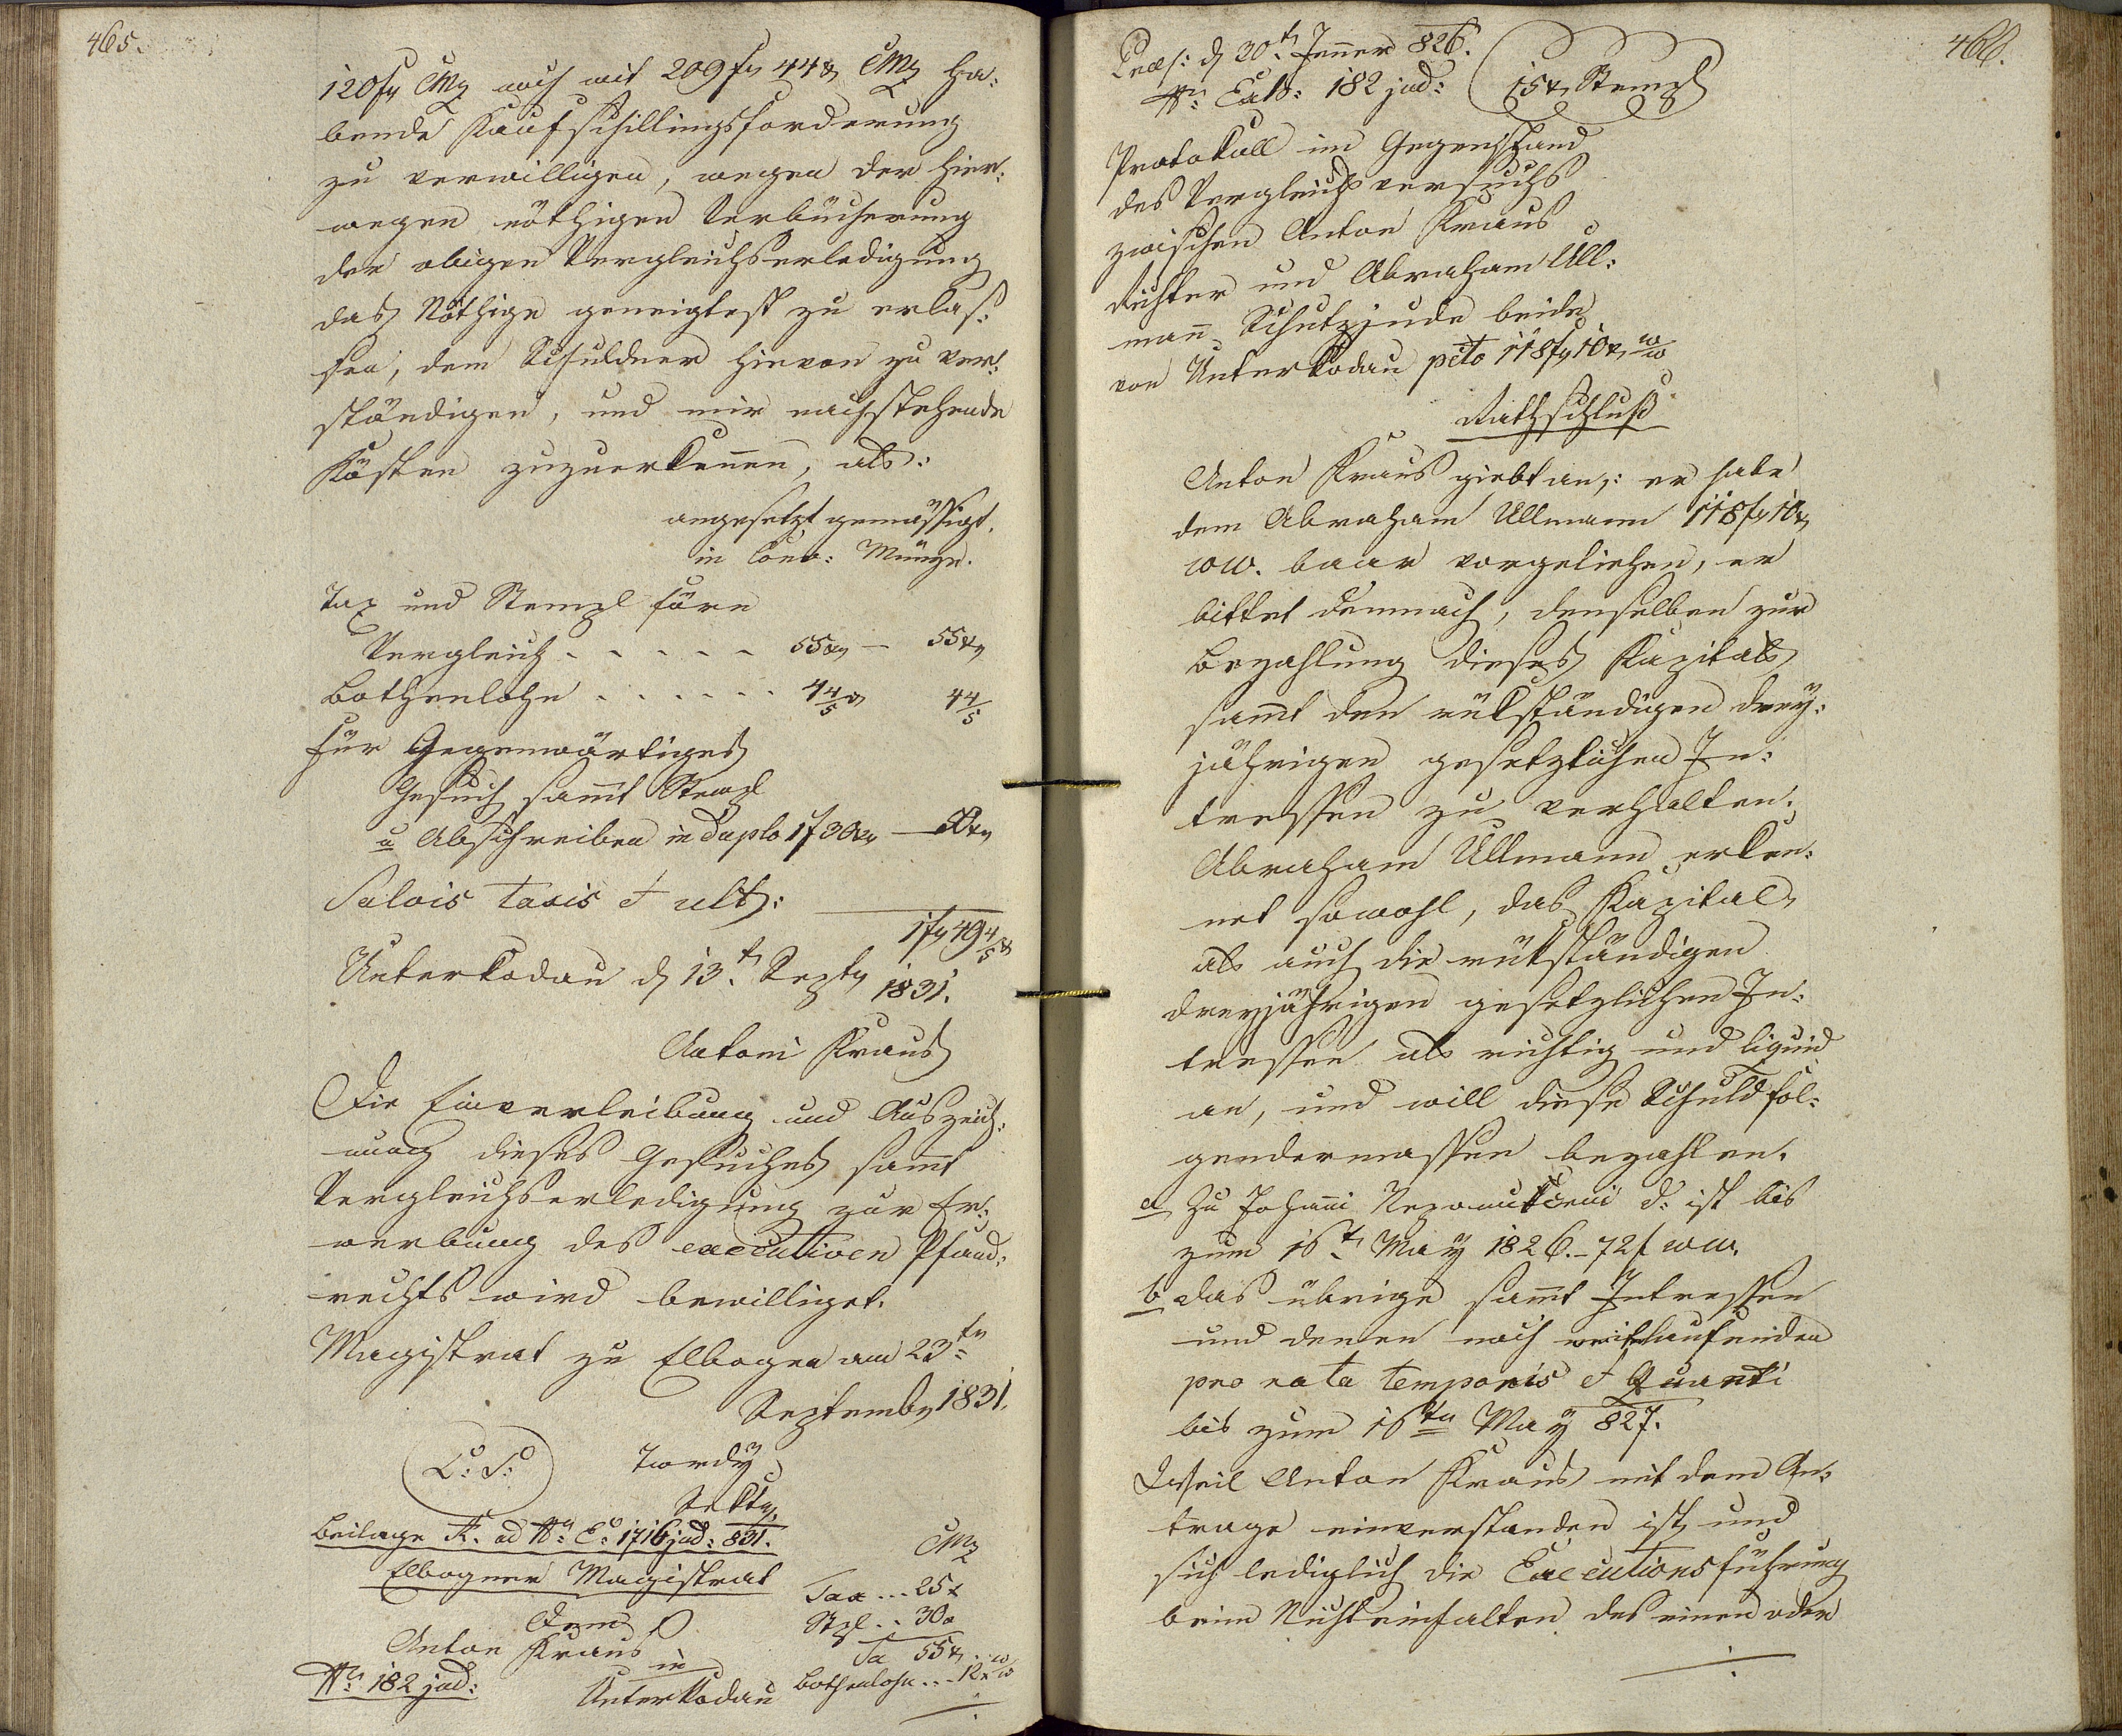 465.
120 fr CMz noch mit 209 fr 44 xr CMz ha:
bende Kaufschillingsforderung
zu verwilligen, wegen der hier:
wegen nöthigen Verbücherung
der obigen Vergleichserledigung
das Nöthige geneigtest zu erlas:
sen, dem Schuldner hievon zu ver:
ständigen, und mir nachstehende
Kösten zuzuerkennen, als:
angesetzt gemässigt.
in Conv: Münze.
Tax und Stempl fürn
Vergleich . . . . . 55 xr — 55 xr
Bothenlohn . . . . . . 4 4/5 xr 4 4/5
für Gegenwärtiges
Gesuch sammt Stempl
u Abschreiben in Duplo 1 f 30 xr —
Salvis taxis et ult:
1 fr 49 4/5 xr
Unterkodau d 13.t Septr 1831.
Antoni Kraus
Die Einverleibung und Auszeich:
nung dieses Gesuches sammt
Vergleichserledigung zur Er:
werbung des executiven Pfand:
rechts wird bewilliget.
Magistrat zu Elbogen am 23tn
Septembr 1831.
L: S:
Tordÿ
Sekltr.
Beilage A. ad No E: 1716 jud: 831.
Elbogner Magistrat
CMz
Tax ... 25 x
Dem
Stpl . . 30 x
Anton Kraus
Sa 55 xr
in
No 182 jud:
Unterkodau
Bothenlohn . . . 12 x w/w
466.
Praes: d 30t Jenner 826.
No: Exh: 182 jud:
15 xr Stempl
Protokoll im Gegenstand
des Vergleichsversuchs
zwischen Anton Kraus
Richter und Abraham Ull:
mann Schutzjude beide
von Unterkodau pcto 118 fr 10 xr w/w
Rathschluß
Anton Kraus giebt an,: er habe
dem Abraham Ullmann 118 fr 10 xr
ww. baar vorgeliehen, er
bittet demnach, denselben zur
Bezahlung dieses Kapitals
sammt den rükständigen dreÿ:
jährigen gesetzlichen In:
tressen zu verhalten.
Abraham Ullmann erken:
net sowohl, das Kapital,
als auch die rükständigen
dreyjährigen gesetzlichen In:
tressen als richtig und liquid
an, und will diese Schuld fol:
gendermassen bezahlen.
a Zu Johanni Nepomutzeni d: ist bis
zum 16.t Maÿ 1826. – 72 f ww.
b das übrige sammt Intressen
und denen noch weiterlaufenden
pro rata temporis et Quanti
bis zum 16tn Maÿ 827.
Weil Anton Kraus mit dem An:
trage einverstanden ist, und
sich lediglich die Executionsführung
beim Nichteinhalten des einen oder